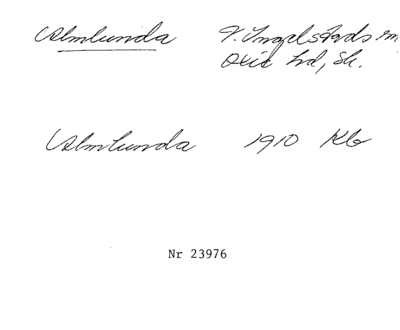 Almlunda V. Ingelstads sn
Oxie hd, Sk.
Almlunda 1910 Kb
Nr 23976